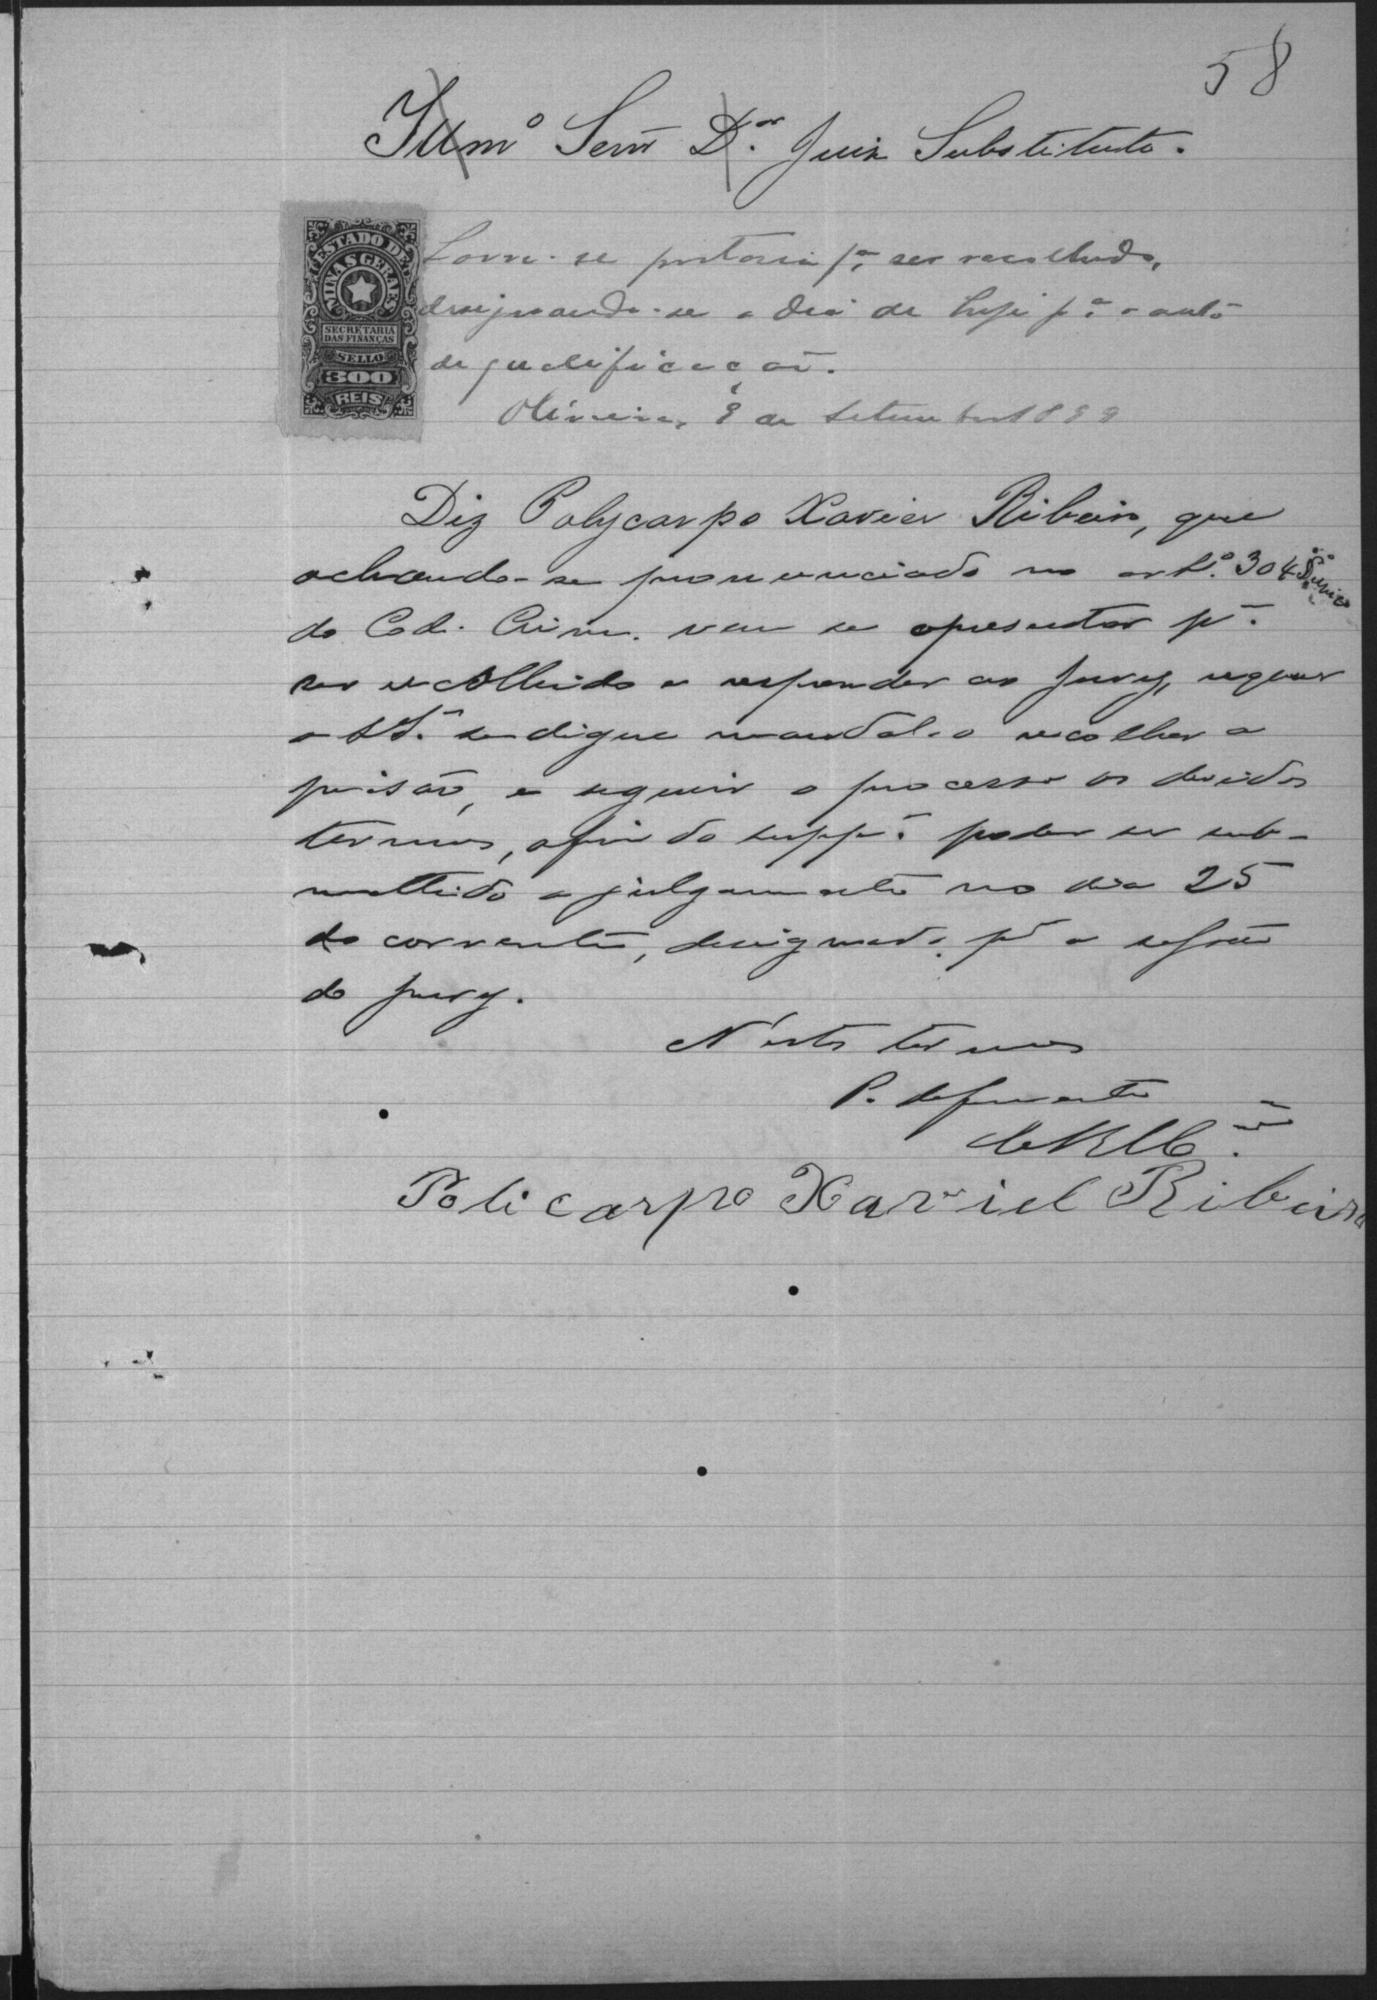 58
Illmº Senr Dor. Juiz Substituto.
ESTADO DE
MINAS GERAES
SECRETARIA
DAS FINANÇAS
SELLO
300
REIS
Lavre-se portaria pª ser recolhido,
designando-se o dia de hoje pª o auto
de qualificação.
Oliveira, 8 de Setembro 1899
Diz Polycarpo Xavier Ribeiro, que
achando-se pronunciado no artº. 304 § unico
do Cod. Crim. vem se apresentar pª.
ser recolhido e responder ao jury, requer
a VSª. se digne mandal-o recolher a
prisão, e seguir o processo os devidos
termos, afim do suppe. poder ser sub-
mettido a julgamento no dia 25
do corrente, designado pª a sessão
do jury.
N'estes termos
P. deferimento
E R Mcê.
Policarpo Xaviel Ribeiro